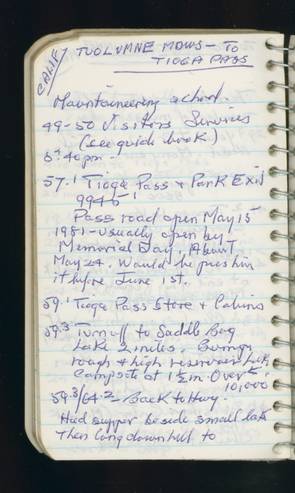 CALIF
TUOLUMNE MDWS - TO
TIOGA PASS
Mountaineering school.
49-50 Visitors Services
(see guide book)
5:40 pm -
57.1 Tioga Pass & Park Exit
9945'
Pass road open May 15
1981 - usually open by
Memorial Day. About
May 24. Would be pushing
it before June 1st.
59.1 Tioga Pass Store & Cabins
59.3 Turnoff to Saddle Bag
Lake 2 miles. Bumpy
rough & high reservoir
Campsite at 1 1/2 m. Over
10,000
59.3/64.2 - Back to Hwy.
Had supper beside small lake
Then long downhill to